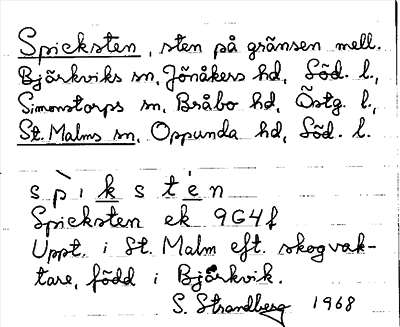 Spicksten, sten på gränsen mell.
Björkviks sn, Jönåkers hd, Söd. l.,
Simonstorps sn, Bråbo hd, Östg. l.,
St. Malms sn, Oppunda hd, Söd. l.
s p ı k s t e n
Spicksten ek 9G4f
Uppt. i St. Malm eft. skogvak-
tare, född i Björkvik.
S. Strandberg 1968